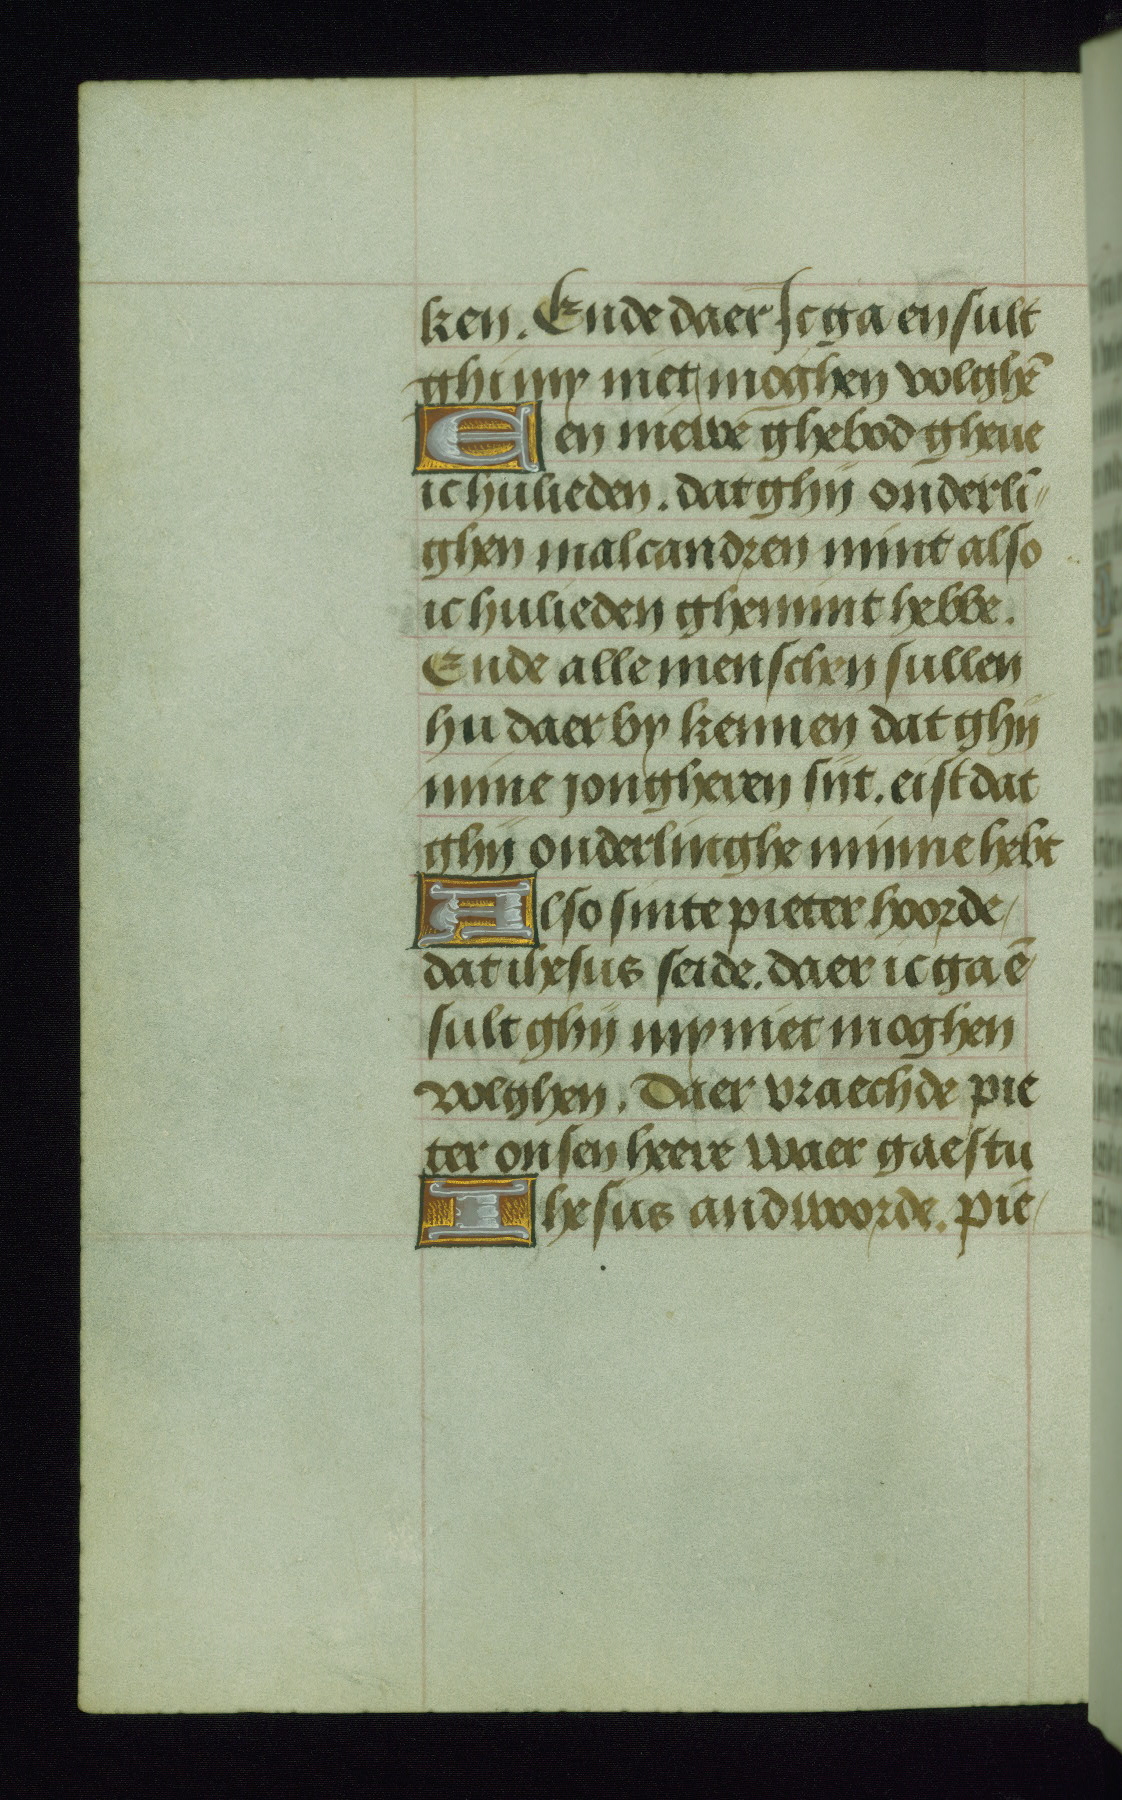 ken. Ende daer Ic ga en sult
ghi my niet moghen volghē
Een niewē ghebod gheue
ic hulieden. dat ghij onderlī
ghen malcandren mint also
ic hulieden ghemint hebbe.
Ende alle menschen sullen
hu daer by kennen dat ghij
mine jongheren siit. eist dat
ghij onderlinghe minne hebt
Also sinte pieter hoorde
dat ihesus seide. daer ic ga ē
sult ghij my niet moghen
volghen. Daer vraechde pie
ter onsen heere waer gaestu
Ihesus andwoorde. pie